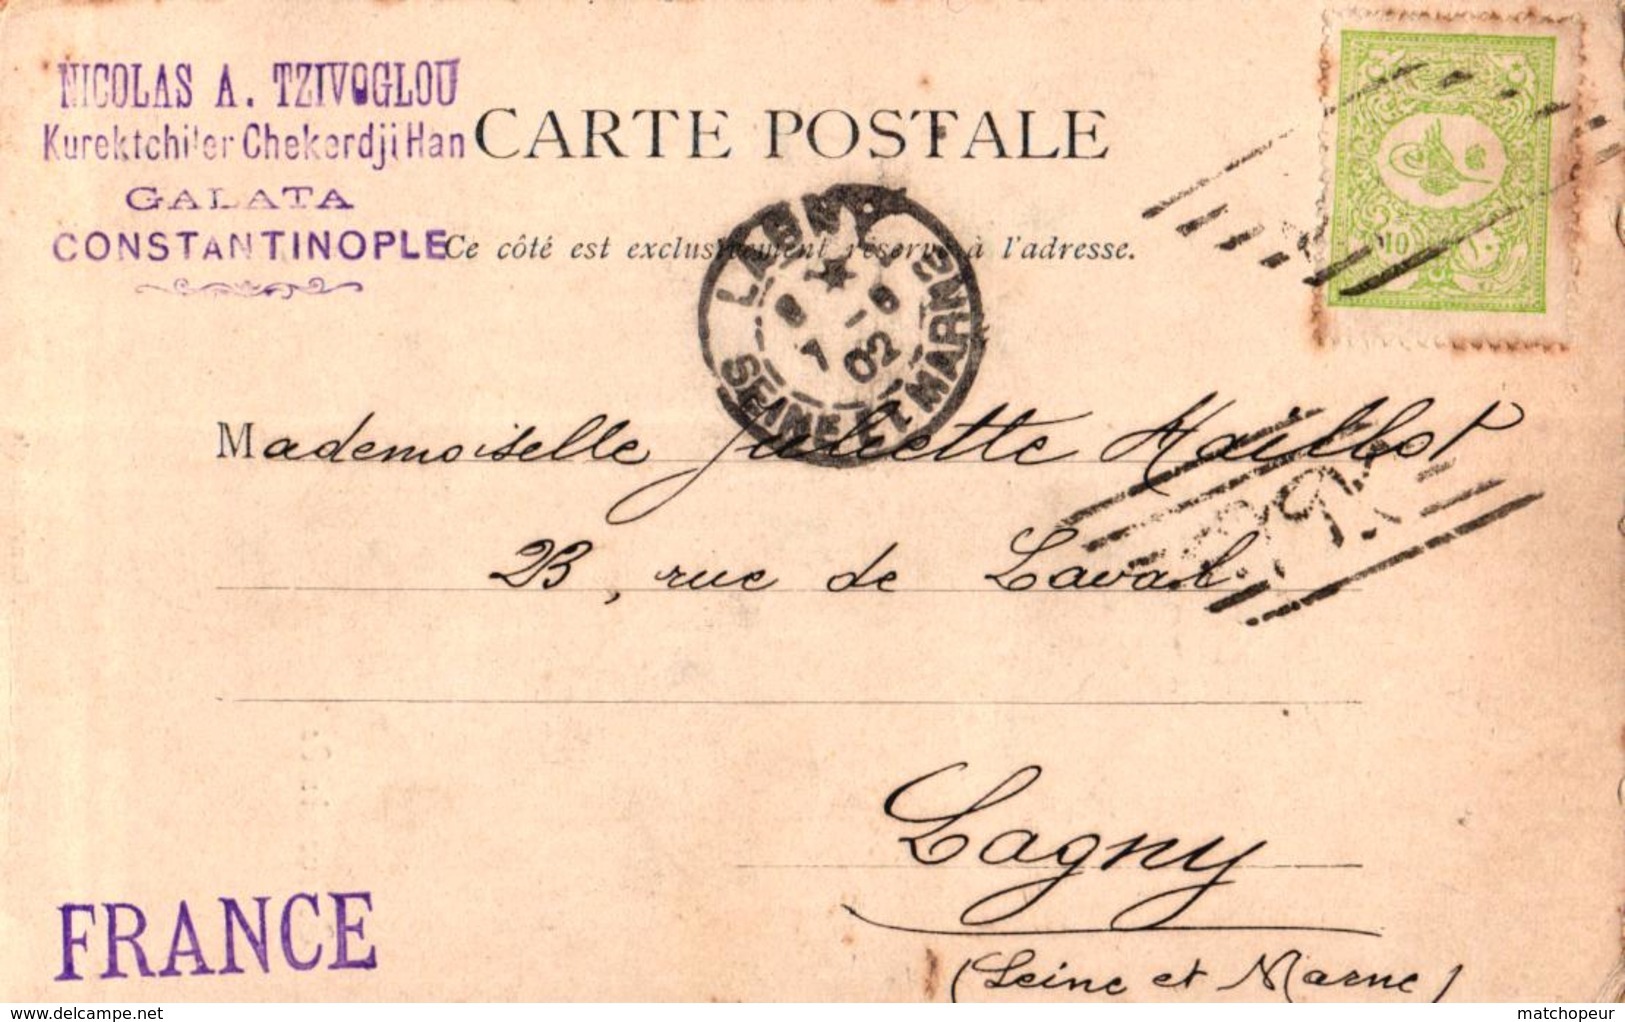 NICOLAS A. TZIVOGLOU
Kurektchiler Chekerdji Han
GALATA
CONSTANTINOPLE
CARTE POSTALE
Ce côté est exclusivement réservé à l'adresse.
LAGNY
02
SEINE ET MARNE
10
Mademoiselle Juliette Haillot
23, rue de Laval
Lagny
(Seine et Marne)
FRANCE
www.delcampe.net
matchopeur